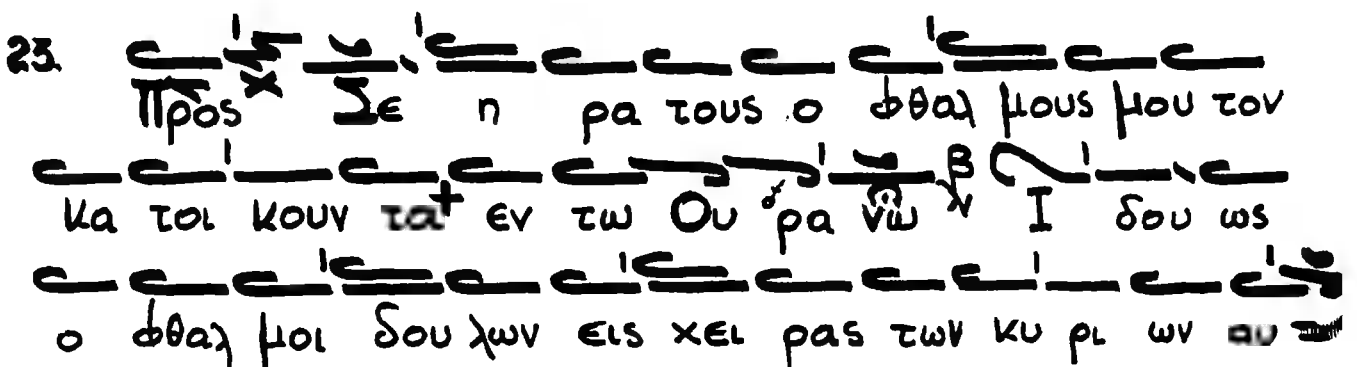 23. Προς Σε η ρα τους ο φθαλ μους μου τον
κα τοι κουν τα εν τω Ου ρα νω Ι δου ως
ο φθαλ μοι δου λων εις χει ρας των κυ ρι ων αυ